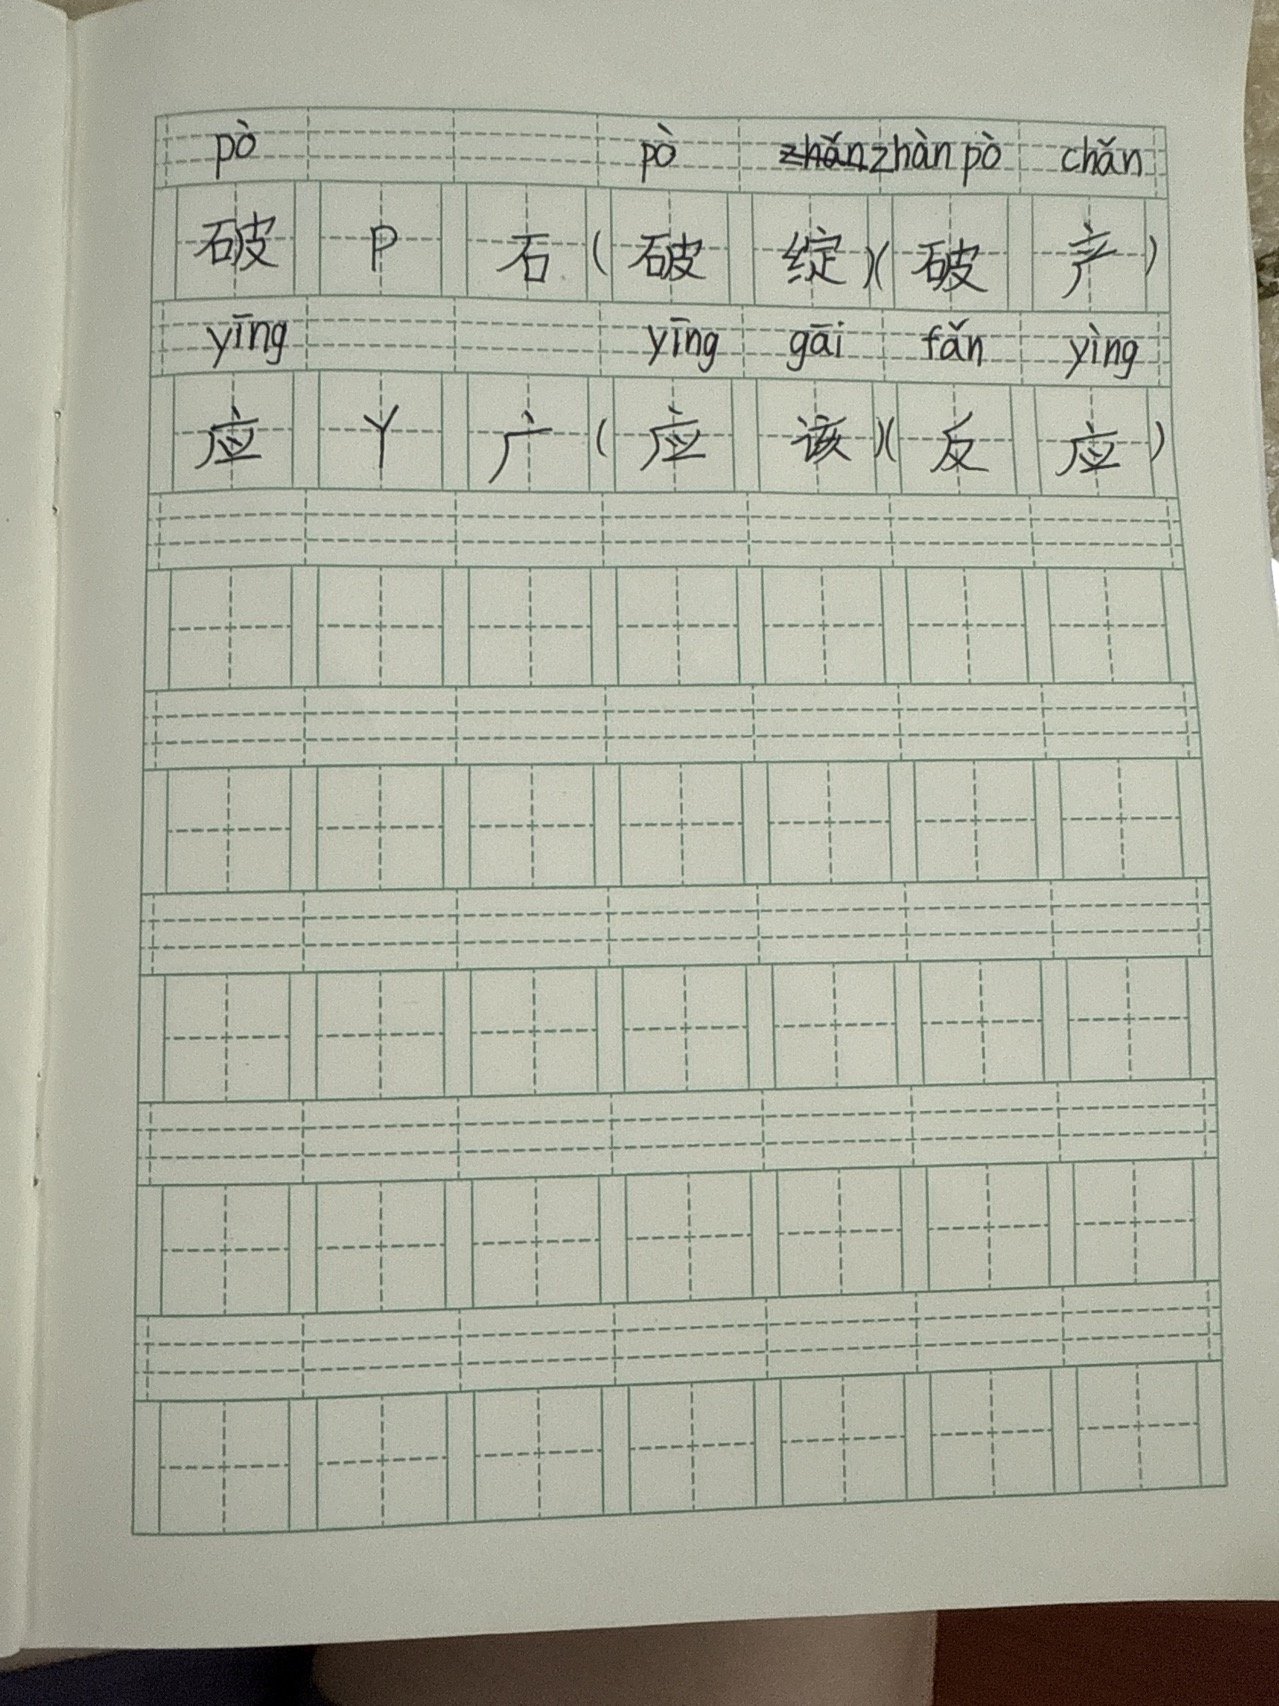 pò pò zhǎn zhàn pò chǎn
破 P 石 (破 绽)(破 产)
yīng yīng gāi fǎn yìng
应 Y 广 (应 该)(反 应)